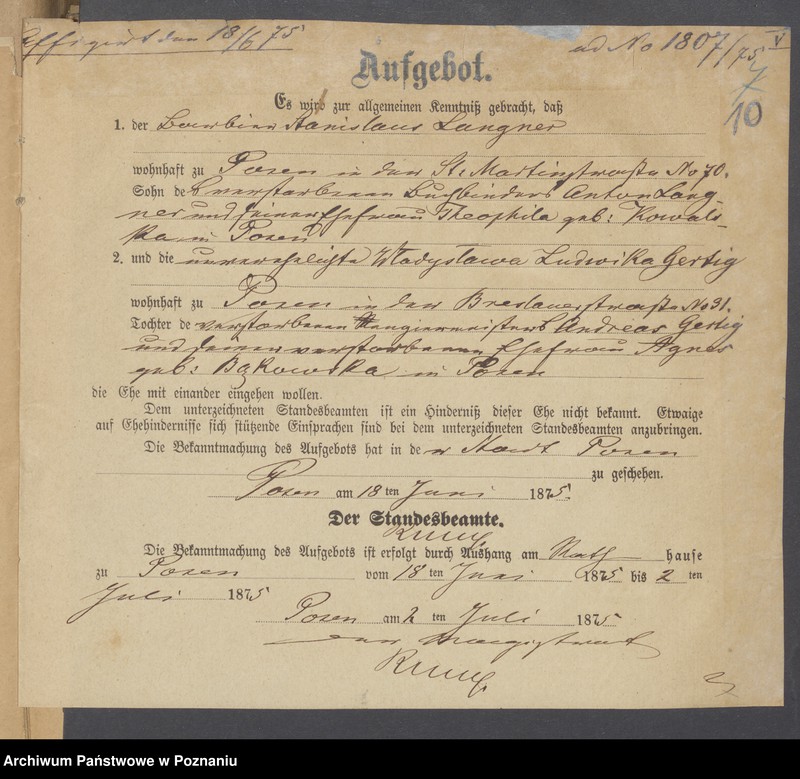 Affigirt den 18/6 75
ad No 1807/75 V
7
10
Aufgebot.
Es wird zur allgemeinen Kenntniß gebracht, daß
1. der Barbier Stanislaus Langner
wohnhaft zu Posen in der St. Martinstraße No 70.
Sohn des verstorbenen Buchbinders Anton Lang-
ner und seiner Ehefrau Theophila geb: Kowals-
ka in Posen
2. und die unverehelichte Wladyslawa Ludwika Gertig
wohnhaft zu Posen in der Breslauerstraße No 31.
Tochter de verstorbenen Andreas Gertig
und dessen verstorbenen Ehefrau Agnes
geb: Bąkowska in Posen
die Ehe mit einander eingehen wollen.
Dem unterzeichneten Standesbeamten ist ein Hinderniß dieser Ehe nicht bekannt. Etwaige
auf Ehehindernisse sich stützende Einsprachen sind bei dem unterzeichneten Standesbeamten anzubringen.
Die Bekanntmachung des Aufgebots hat in der Stadt Posen
zu geschehen.
Posen am 18 ten Juni 1875.
Der Standesbeamte.
Die Bekanntmachung des Aufgebots ist erfolgt durch Aushang am Rath hause
zu Posen vom 18 ten Juni 1875 bis 2 ten
Juli 1875
Posen am 2 ten Juli 1875
Der Magistrat
Archiwum Państwowe w Poznaniu